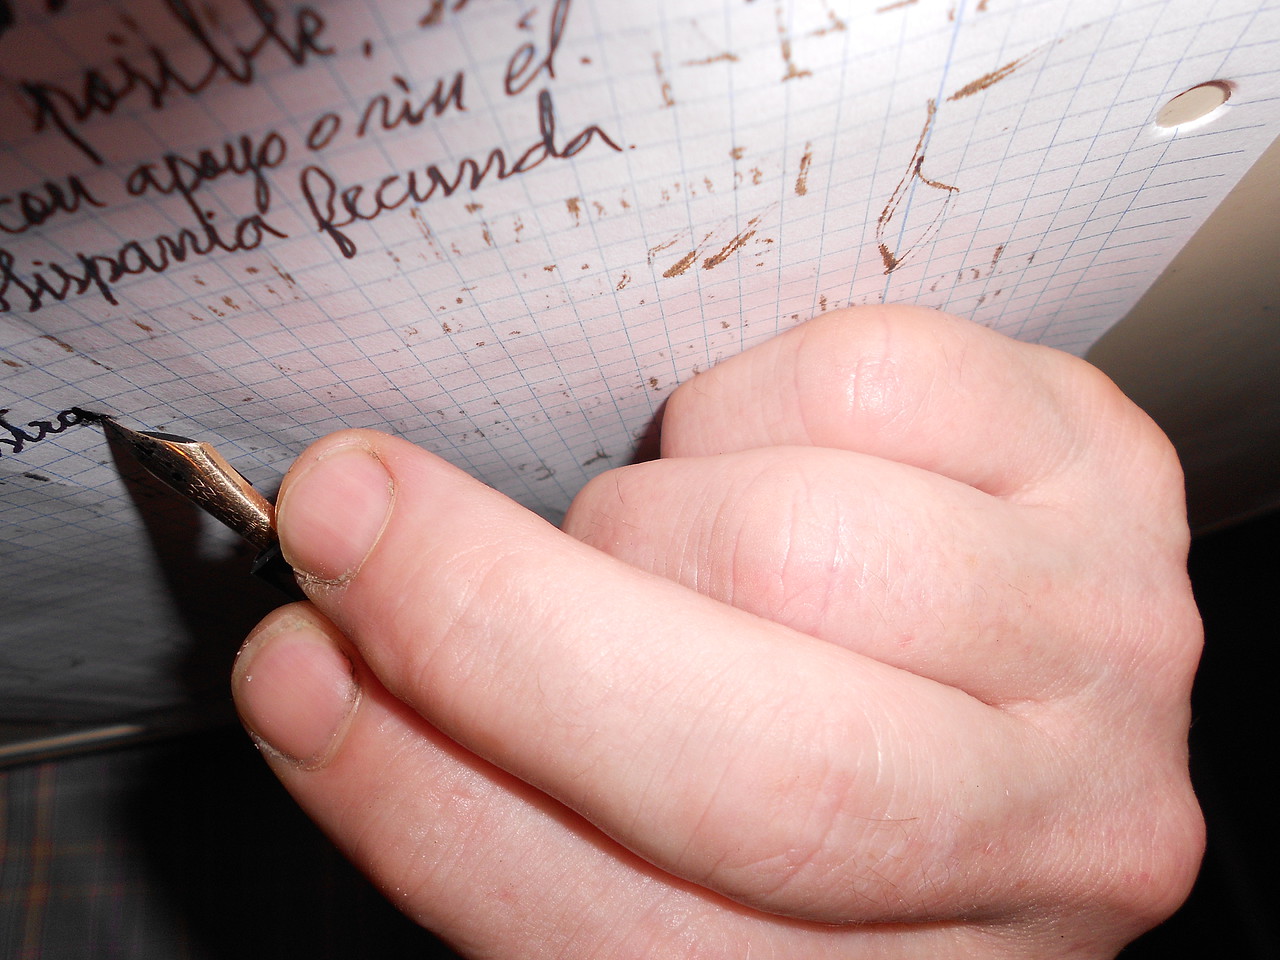 posible,
con apoyo o sin él.
Hispania fecunda.
stra